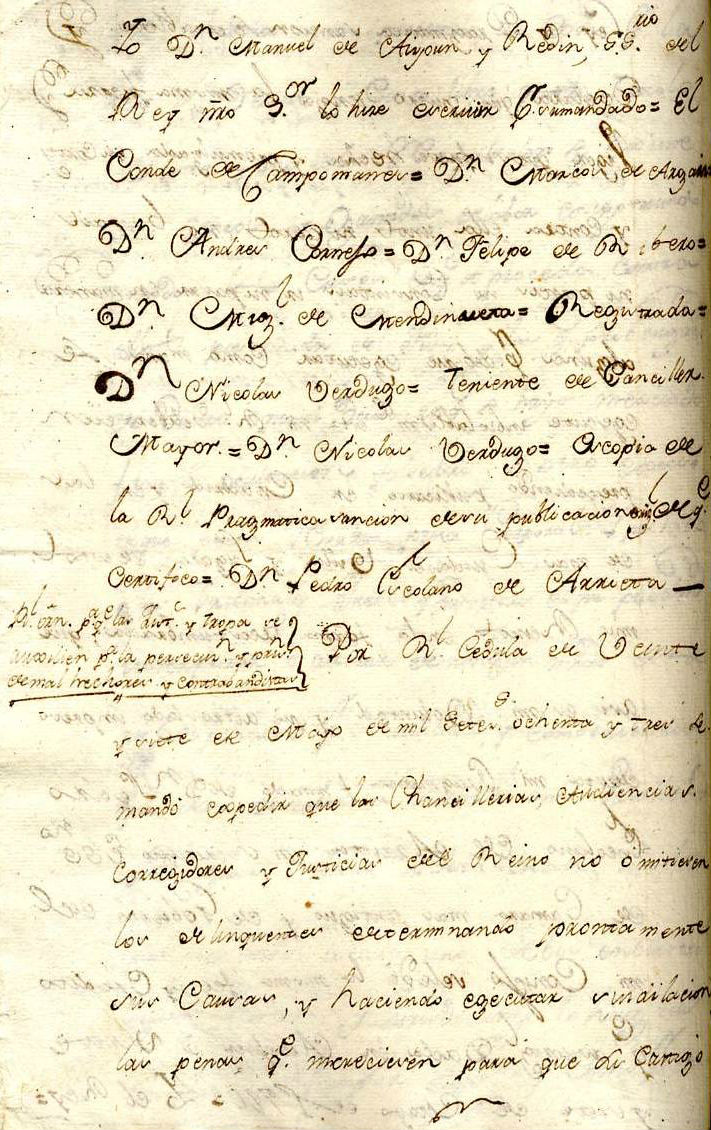 Yo Dn. Manuel de Aizpun, y Redin, SS.rio del
Rey nro S.or lo hize escrivir P. sumandado= El
Conde de Campomanes= Dn. Marcos, de Argaiz
Dn. Andres Cornejo= Dn. Felipe de Ribero=
Dn. Mig.l de Mendinueta= Registrada=
Dn. Nicolas Verdugo= Teniente de Canciller
Mayor.= Dn. Nicolas Verdugo= Escopia de
la Rl. Pragmatica sancion desu publicacion de q.e
Certifico= Dn. Pedro Escolano de Arrieta —
Rl. orn. p.a q.e las Just.s y tropa se
auxilien p.a la persecuc.n y pris.n
de mal hechores y Contrabandistas
Por Rl. Cedula de Veinte
y siete de Mayo de mil Setez.s ochenta y tres se
mandó expedir que las Chancillerias, Audiencias.
Corregidores y Justicias del Reino no omitiesen
los delinquentes determinando prontamente
sus Causas, y haciendo egecutar sindilacion
las penas q.e mereciesen para que su Castigo